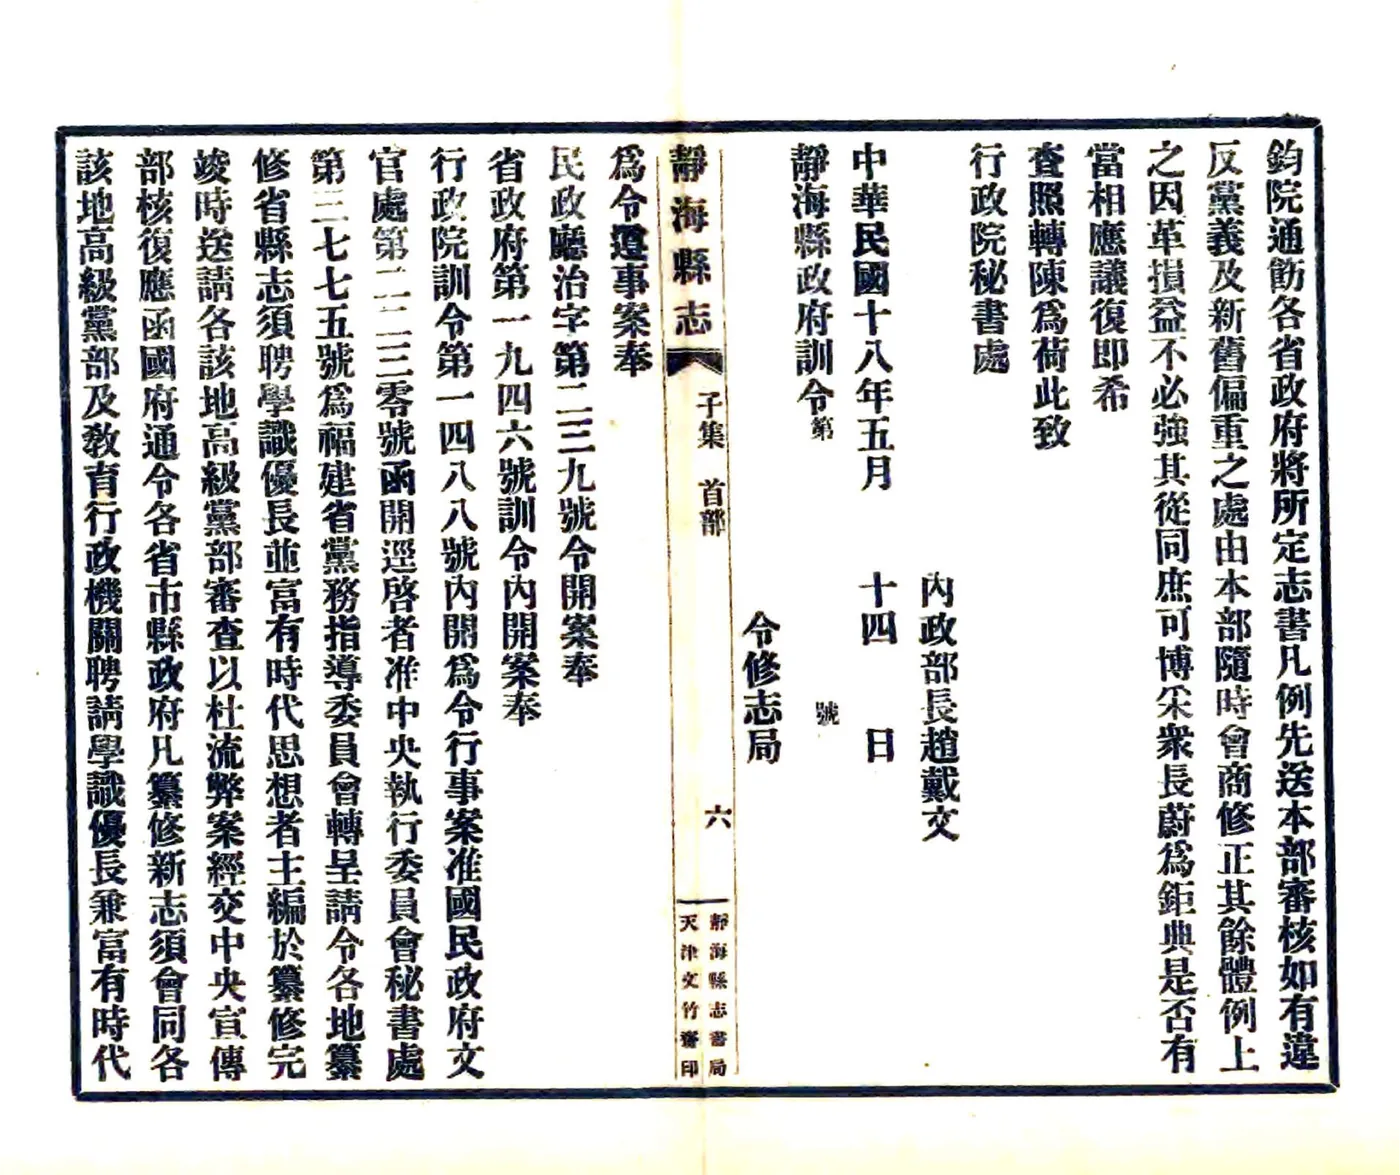 鈞院通飭各省政府將所定志書凡例先送本部審核如有違
反黨義及新舊偏重之處由本部隨時會商修正其餘體例上
之因革損益不必強其從同庶可博采衆長蔚爲鉅典是否有
當相應議復即希
查照轉陳爲荷此致
行政院秘書處
內政部長趙戴文
中華民國十八年五月 十四 日
靜海縣政府訓令第 號
令修志局
靜海縣志 子集 首部 六 靜海縣志書局
天津文竹齋印
爲令遵事案奉
民政廳治字第二三九號令開案奉
省政府第一九四六號訓令內開案奉
行政院訓令第一四八八號內開爲令行事案准國民政府文
官處第二二三零號函開逕啓者准中央執行委員會秘書處
第三七七五號爲福建省黨務指導委員會轉呈請令各地纂
修省縣志須聘學識優長並富有時代思想者主編於纂修完
竣時送請各該地高級黨部審查以杜流弊案經交中央宣傳
部核復應函國府通令各省市縣政府凡纂修新志須會同各
該地高級黨部及敎育行政機關聘請學識優長兼富有時代